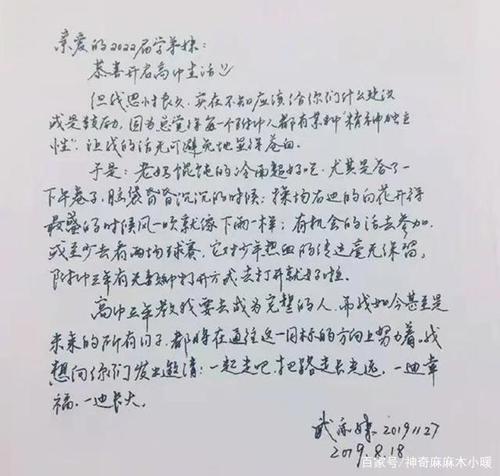 亲爱的2022届学弟妹：
恭喜开启高中生活
但我思忖良久，实在不知应该给你们什么建议
或是鼓动，因为总觉得每一个附中人都有某种“精神独立
性”，让我的话无可避免地显得苍白
于是：老妈馄饨的冷面超好吃，尤其是答了一
下午卷子，脑袋昏昏沉沉的时候；操场右边的白花开得
最盛的时候风一吹就像下雨一样；有机会的话去参加
或至少去看两场球赛，它对少年热血的传达毫无保留；
附中三年有无数种打开方式去打开就好啦
高中三年教我要去成为完整的人，而我如今甚至是
未来的所有日子，都将在通往这一目标的方向上努力着，我
想向你们发出邀请：一起走吧，把路走长走远，一边幸
福，一边长大。
武亦姝 20191127
2019.8.18
百家号/神奇麻麻木小暖